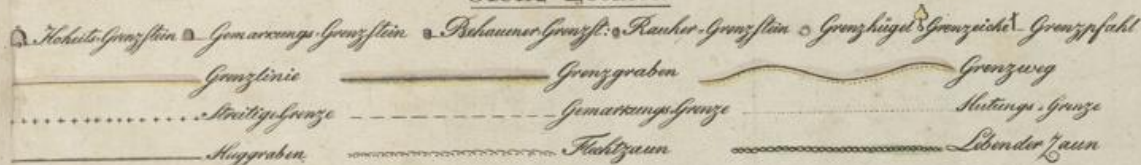 Hoheits-Grenzstein Gemarkungs-Grenzstein Behauener-Grenzst: Rauher-Grenzstein Grenzhügel Grenzeiche Grenzpfahl
Grenzlinie Grenzgraben Grenzweg
Streitige Grenze Gemarkungs-Grenze Hutungs-Grenze
Huggraben Flechtzaun Lebender Zaun